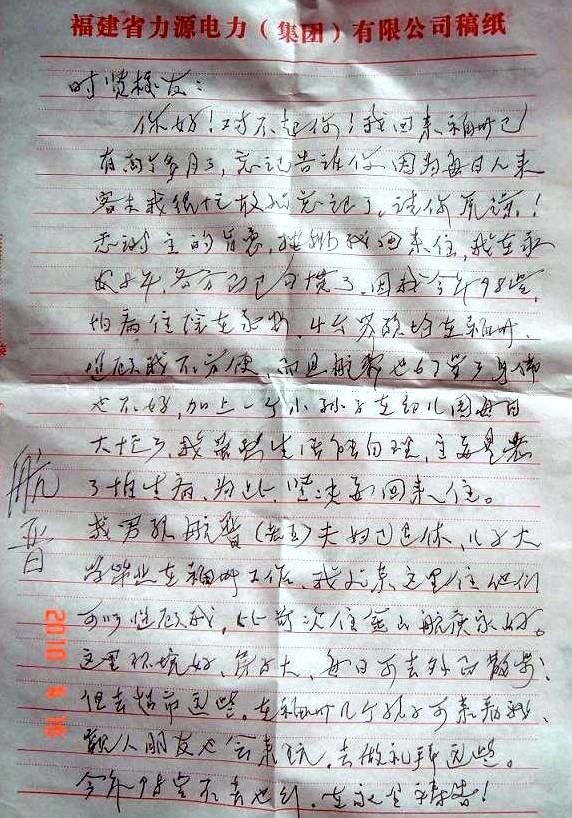 福建省力源电力（集团）有限公司稿纸
时贤棣友：
你好！对不起你！我回来福州已
有两个多月了，忘记告诉你，因为每日人来
客去我很忙故忘记了，请你原谅！
感谢主的旨意，安排我回来住，我在永
安8年，各方面已习惯了，因我今年98岁，
怕病住院在永安，4个男孩均在福州，
照顾我不方便，而且航 也 身体
也不好，加上一个小孙子在幼儿园每日
太忙了，我虽然生活能自理，主要是老
了怕生病，为此，坚决要回来住。
我男孩航晋（老五）夫妇已退休，儿子大
学毕业在福州工作，我回来这里住他们
可以照顾我，比前次住金山航 家好。
这里环境好，房子大，每日可去外面散步，
但去超市远些。在福州几个孩子可来看我，
亲人朋友也会来玩，去做礼拜远些。
今年98岁不去也行，在家里祷告！
航晋
2010 4 16